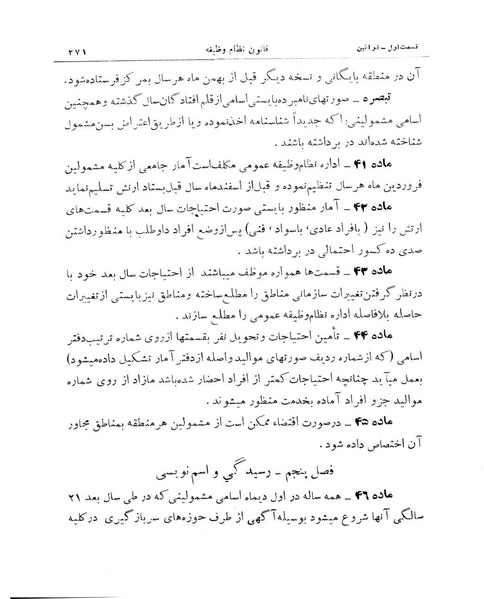 قسمت اول - قوانین قانون نظام وظیفه ۲۷۱
آن در منطقه بایگانی و نسخه دیگر قبل از بهمن ماه هرسال بمرکز فرستاده شود.
تبصره - صورتهای نامبرده بایستی اسامی از قلم افتادگان سال گذشته و همچنین
اسامی مشمولینی را که جدیداً شناسنامه اخذ نموده و یا از طریق اعتراض بسن مشمول
شناخته شده‌اند در برداشته باشند .
ماده ۴۱ - اداره نظام وظیفه عمومی مکلف است آمار جامعی از کلیه مشمولین
فروردین ماه هرسال تنظیم نموده و قبل از اسفندماه سال قبل بستاد ارتش تسلیم نماید
ماده ۴۲ - آمار منظور بایستی صورت احتیاجات سال بعد کلیه قسمت‌های
ارتش را نیز ( بافراد عادی، باسواد، فنی) پس از وضع افراد داوطلب با منظور داشتن
صدی ده کسور احتمالی در برداشته باشد .
ماده ۴۳ - قسمت‌ها همواره موظف میباشند از احتیاجات سال بعد خود با
در نظر گرفتن تغییرات سازمانی مناطق را مطلع ساخته و مناطق نیز بایستی از تغییرات
حاصله بلافاصله اداره نظام وظیفه عمومی را مطلع سازند .
ماده ۴۴ - تأمین احتیاجات و تحویل نفر بقسمتها از روی شماره ترتیب دفتر
اسامی (که از شماره ردیف صورتهای موالید واصله از دفتر آمار تشکیل داده میشود)
بعمل میآید چنانچه احتیاجات کمتر از افراد احضار شده باشد مازاد از روی شماره
موالید جزو افراد آماده بخدمت منظور میشوند .
ماده ۴۵ - در صورت اقتضاء ممکن است از مشمولین هر منطقه بمناطق مجاور
آن اختصاص داده شود .
فصل پنجم - رسیدگی و اسم نویسی
ماده ۴۶ - همه ساله در اول دیماه اسامی مشمولینی که در طی سال بعد ۲۱
سالگی آنها شروع میشود بوسیله آگهی از طرف حوزه‌های سربازگیری در کلیه